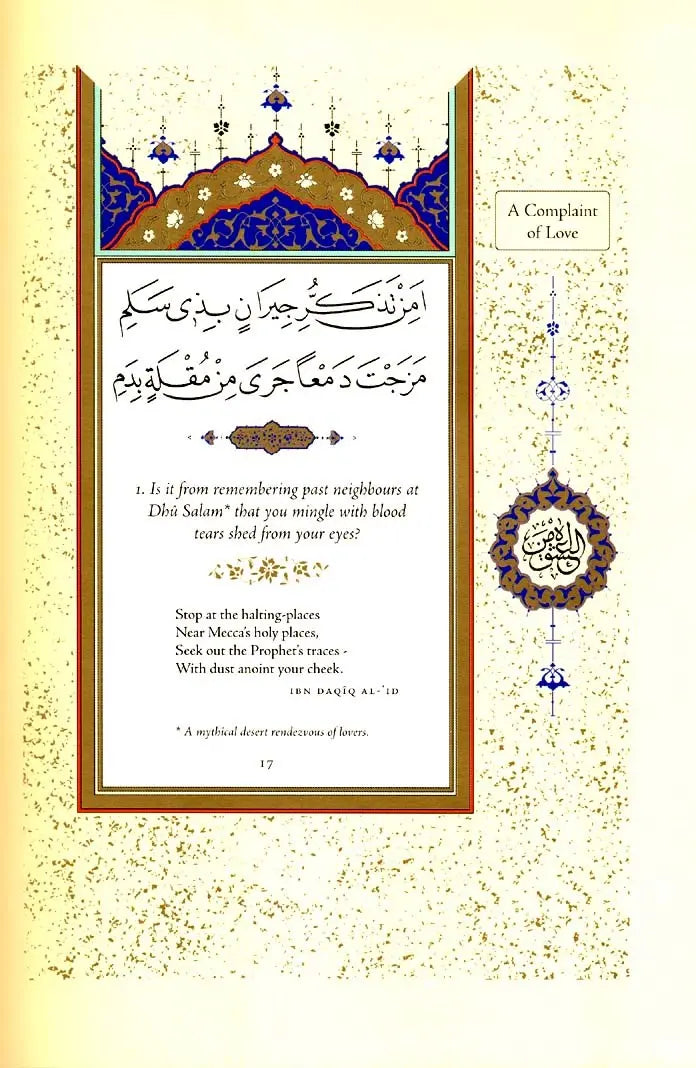 A Complaint
of Love
اَمِنْ تَذَكُّرِ جِيرَانٍ بِذِى سَلَمِ
مَزَجْتَ دَمْعاً جَرَى مِنْ مُقْلَةٍ بِدَمِ
1. Is it from remembering past neighbours at
Dhû Salam* that you mingle with blood
tears shed from your eyes?
Stop at the halting-places
Near Mecca's holy places,
Seek out the Prophet's traces -
With dust anoint your cheek.
IBN DAQÎQ AL-ʿID
* A mythical desert rendezvous of lovers.
17